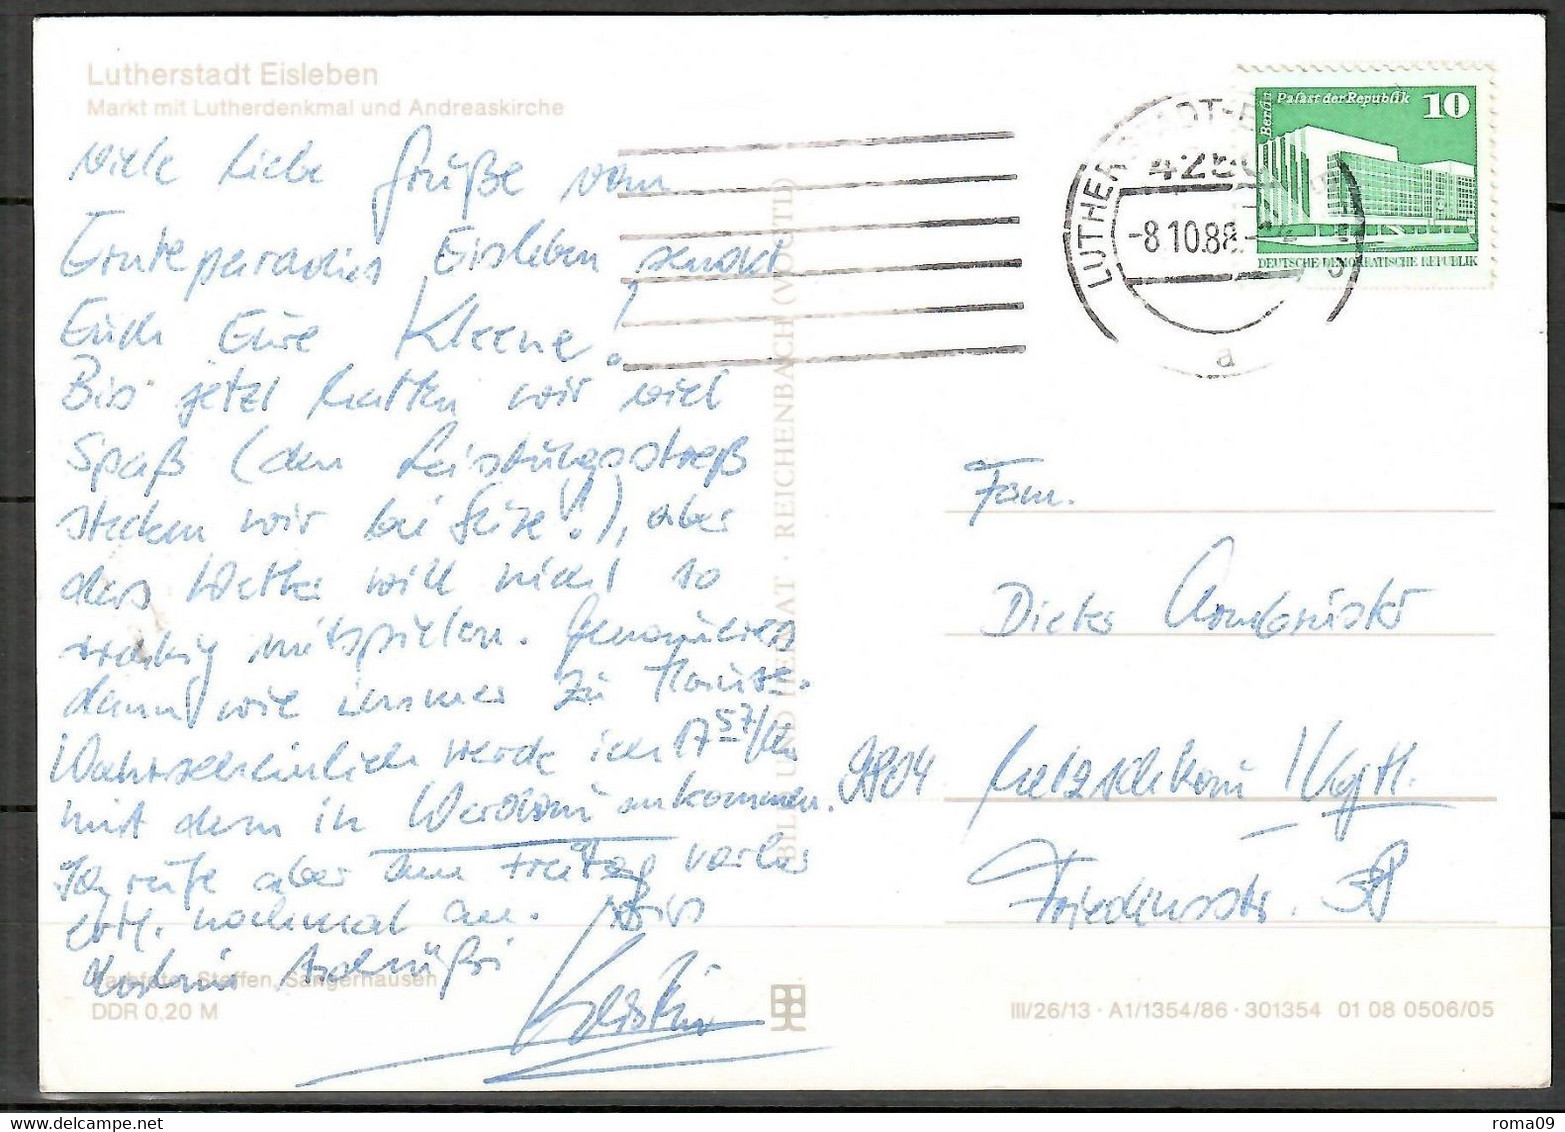 Lutherstadt Eisleben
Markt mit Lutherdenkmal und Andreaskirche
Viele liebe Grüße vom
Ernteparadies Eisleben sendet
Euch Eure Kleene!
Bis jetzt hatten wir viel
Spaß (den Leistungsstreß
stecken wir bei Seite!), aber
das Wetter will nicht so
richtig mitspielen. Genaueres
dann wie immer zu Hause.
Wahrscheinlich werde ich 17 57/Uhr
mit dem in Werdau ankommen.
Ich rufe aber am Freitag vorher
evtl. nochmal an. Bis
dahin Tschüßi
Kerstin
Farbfoto: Steffen, Sangerhausen
DDR 0,20 M
BILD UND HEIMAT · REICHENBACH (VOGTL)
Berlin
Palast der Republik
10
DEUTSCHE DEMOKRATISCHE REPUBLIK
LUTHERSTADT
-8.10.88.-
a
Fam.
Dieter Armbrüster
9804 Netzschkau / Vogtl.
Friedensstr. 38
III/26/13 · A1/1354/86 · 301354 01 08 0506/05
roma09